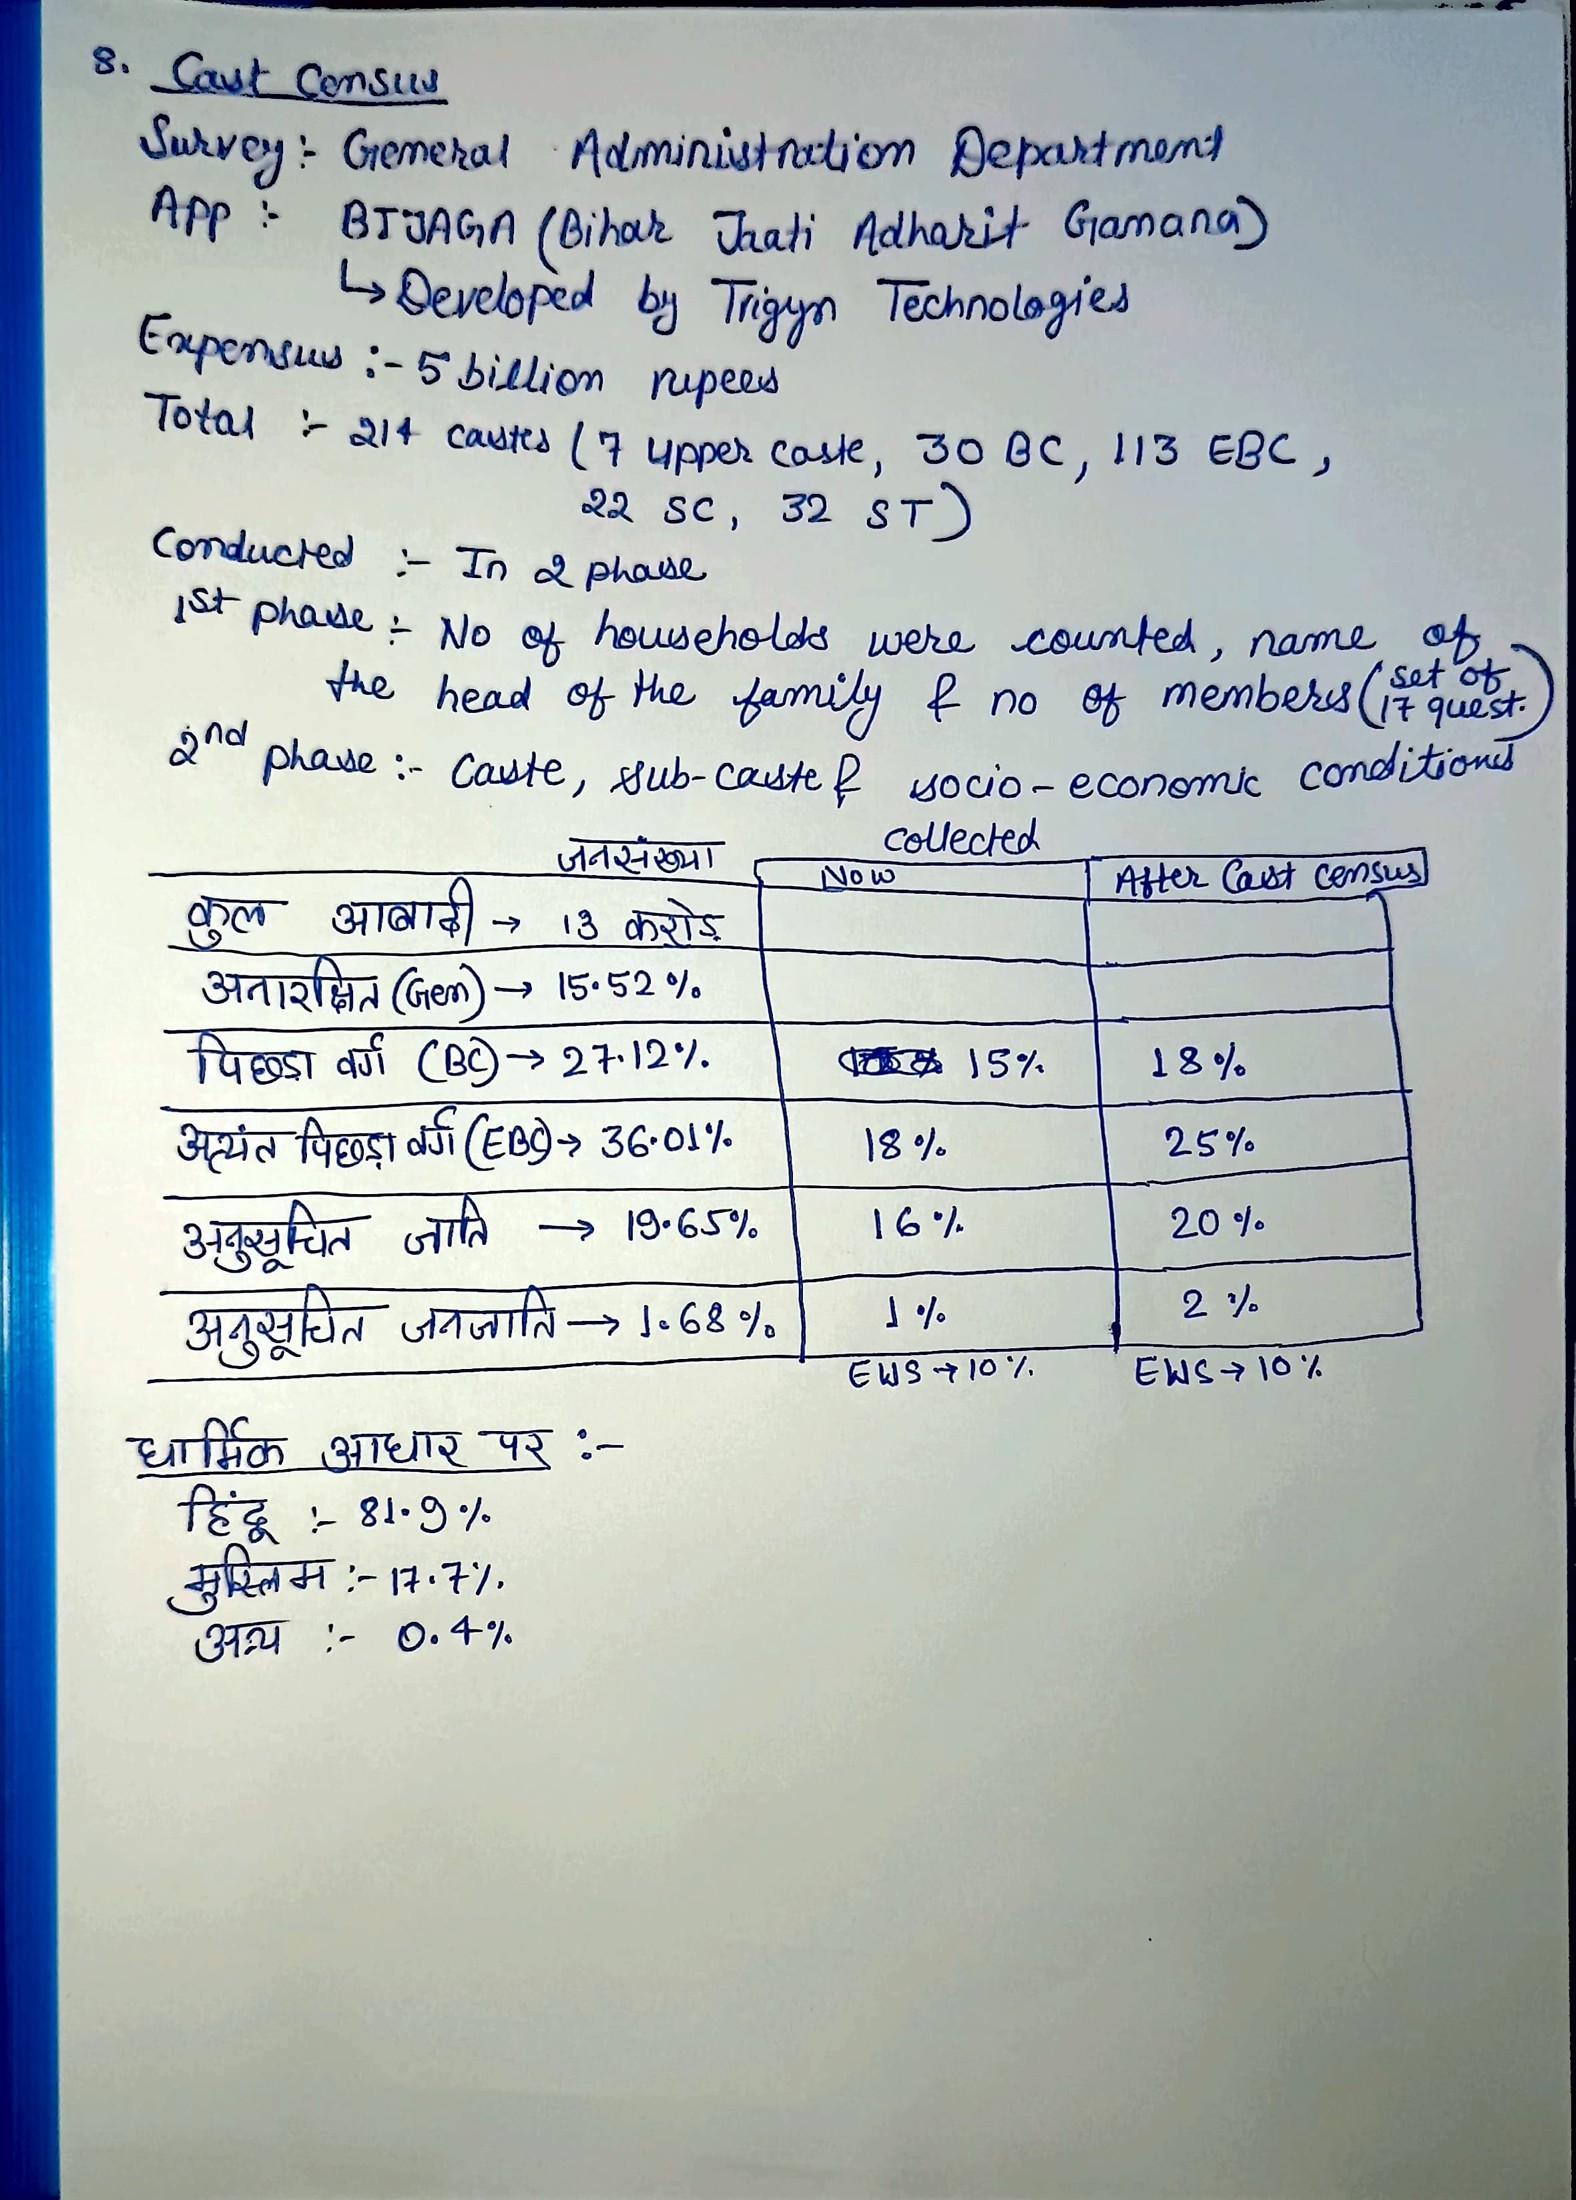 8. Cast Census
Survey :- General Administration Department
App :- BIJAGA (Bihar Jaati Adharit Ganana)
↳ Developed by Trigyn Technologies
Expensus :- 5 billion rupees
Total :- 214 castes (7 upper caste, 30 BC, 113 EBC,
22 SC, 32 ST)
Conducted :- In 2 phase
1st phase :- No of households were counted, name of
the head of the family & no of members (set of 17 quest.)
2nd phase :- Caste, sub-caste & socio-economic conditions
collected
जनसंख्या Now After Cast Census
कुल आबादी → 13 करोड़
अनारक्षित (Gen) → 15.52%
पिछड़ा वर्ग (BC) → 27.12% 15% 18%
अत्यंत पिछड़ा वर्ग (EBC) → 36.01% 18% 25%
अनुसूचित जाति → 19.65% 16% 20%
अनुसूचित जनजाति → 1.68% 1% 2%
EWS → 10% EWS → 10%
धार्मिक आधार पर :-
हिंदू :- 81.9%
मुस्लिम :- 17.7%
अन्य :- 0.4%